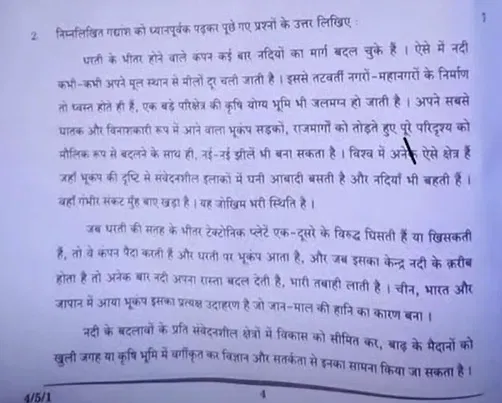 1
2. निम्नलिखित गद्यांश को ध्यानपूर्वक पढ़कर पूछे गए प्रश्नों के उत्तर लिखिए :
धरती के भीतर होने वाले कंपन कई बार नदियों का मार्ग बदल चुके हैं । ऐसे में नदी
कभी-कभी अपने मूल स्थान से मीलों दूर चली जाती है । इससे तटवर्ती नगरों-महानगरों के निर्माण
तो ध्वस्त होते ही हैं, एक बड़े परिक्षेत्र की कृषि योग्य भूमि भी जलमग्न हो जाती है । अपने सबसे
घातक और विनाशकारी रूप में आने वाला भूकंप सड़कों, राजमार्गों को तोड़ते हुए पूरे परिदृश्य को
मौलिक रूप से बदलने के साथ ही, नई-नई झीलें भी बना सकता है । विश्व में अनेक ऐसे क्षेत्र हैं
जहाँ भूकंप की दृष्टि से संवेदनशील इलाकों में घनी आबादी बसती है और नदियाँ भी बहती हैं ।
वहाँ गंभीर संकट मुँह बाए खड़ा है । यह जोखिम भरी स्थिति है ।
जब धरती की सतह के भीतर टेक्टोनिक प्लेटें एक-दूसरे के विरुद्ध घिसती हैं या खिसकती
हैं, तो वे कंपन पैदा करती हैं और धरती पर भूकंप आता है, और जब इसका केन्द्र नदी के क़रीब
होता है तो अनेक बार नदी अपना रास्ता बदल देती है, भारी तबाही लाती है । चीन, भारत और
जापान में आया भूकंप इसका प्रत्यक्ष उदाहरण है जो जान-माल की हानि का कारण बना ।
नदी के बदलावों के प्रति संवेदनशील क्षेत्रों में विकास को सीमित कर, बाढ़ के मैदानों को
खुली जगह या कृषि भूमि में वर्गीकृत कर विज्ञान और सतर्कता से इनका सामना किया जा सकता है ।
4/5/1
4